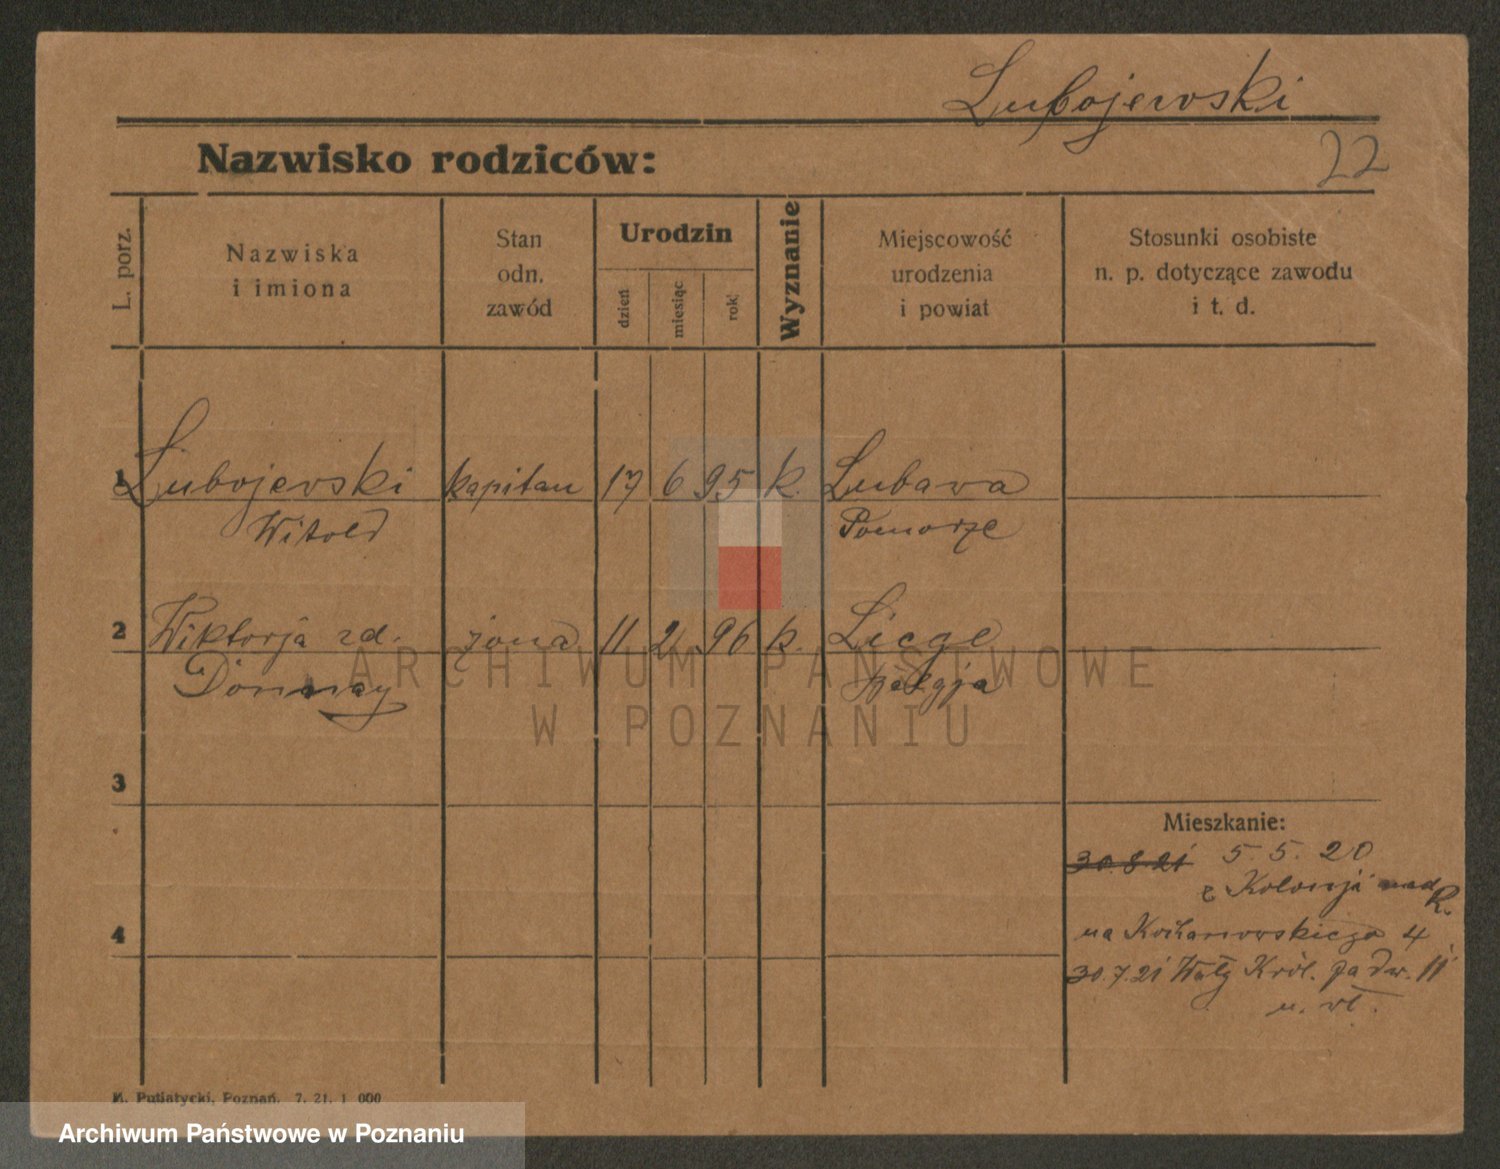 Lubojewski
Nazwisko rodziców:
22
L. porz.
Nazwiska
i imiona
Stan
odn.
zawód
Urodzin
dzień
miesiąc
rok
Wyznanie
Miejscowość
urodzenia
i powiat
Stosunki osobiste
n. p. dotyczące zawodu
i t. d.
1 Lubojewski kapitan 17 6 95 k. Lubawa
Witold Pomorze
2 Wiktorja zd. żona 11 2 96 k. Liege
Donnay Belgja
ARCHIWUM PAŃSTWOWE
W POZNANIU
3
Mieszkanie:
30.8.21 5.5.20
z Kolonji nad R.
4
na Kochanowskiego 4
30.7.21 Wały Król. Jadw. 11
u. wł.
M. Putiatycki, Poznań. 7. 21. 1 000
Archiwum Państwowe w Poznaniu